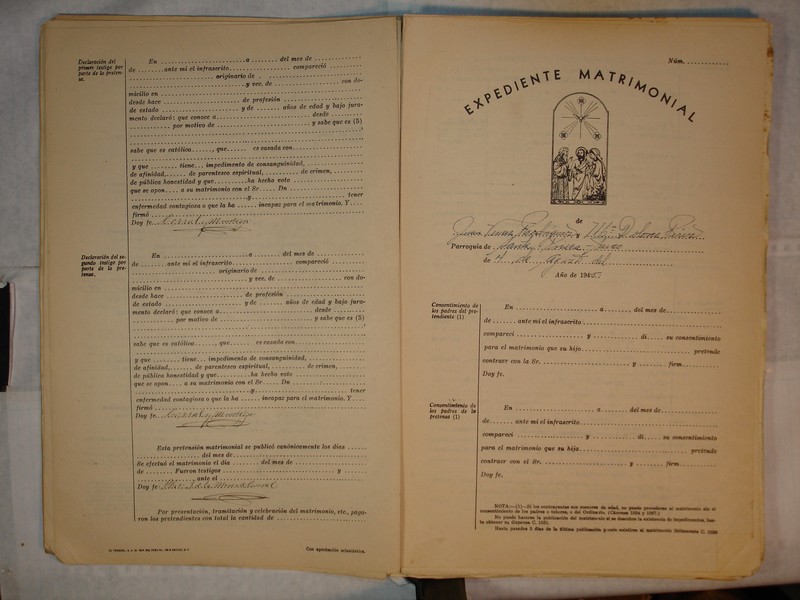 Declaración del
primer testigo por
parte de la preten-
sa.
En ............ a ........ del mes de ............
de ........ ante mí el infrascrito ............ compareció ............
............, originario de ............
............ y vec. de ............ con do-
micilio en ............
desde hace ............ de profesión ............
de estado ............ y de ........ años de edad y bajo jura-
mento declaró: que conoce a ............ desde ............
............, por motivo de ............ y sabe que es (5)
sabe que es católica......, que...... es casada con............
y que ........ tiene... impedimento de consanguinidad, ............
de afinidad,...... de parentesco espiritual, ............ de crimen, ............
de pública honestidad y que............ha hecho voto ............
que se opon.... a su matrimonio con el Sr..... Dn ............
............ y ............ tener
enfermedad contagiosa o que la ha ...... incapaz para el matrimonio. Y....
firmó ............
Doy fe.
Declaración del se-
gundo testigo por
parte de la pre-
tensa.
En ............ a ........ del mes de ............
de ........ ante mí el infrascrito ............ compareció ............
............ originario de ............
............ y vec. de ............ con do-
micilio en ............
desde hace ............ de profesión ............
de estado ............ y de ........ años de edad y bajo jura-
mento declaró: que conoce a ............ desde ............
............ por motivo de ............ y sabe que es (5)
sabe que es católica......, que...... es casada con............
y que ........ tiene... impedimento de consanguinidad, ............
de afinidad, ...... de parentesco espiritual, ............ de crimen,
de pública honestidad y que............ha hecho voto ............
que se opon.... a su matrimonio con el Sr..... Dn ............
............ y ............ tener
enfermedad contagiosa o que la ha ...... incapaz para el matrimonio. Y....
firmó ............
Doy fe.
Esta pretensión matrimonial se publicó canónicamente los días ......
............ del mes de............
Se efectuó el matrimonio el día ........ del mes de ............
de ........ Fueron testigos ............ y
............ ante el ............
Doy fe
Por presentación, tramitación y celebración del matrimonio, etc., paga-
ron los pretendientes con total la cantidad de ............
Con aprobación eclesiástica.
Núm. ............
EXPEDIENTE MATRIMONIAL
de
Parroquia de
de 14 de Agosto del
Año de 194
Consentimiento de
los padres del pre-
tendiente (1)
En ............ a ............ del mes de............
de........ ante mí el infrascrito ............
comparecí ............ y ............ di..... su consentimiento
para el matrimonio que su hijo............ pretende
contraer con la Sr. ............ y ............ firm............
Doy fe.
Consentimiento de
los padres de la
pretensa (1)
En ............ a ............ del mes de............
de........ ante mí el infrascrito ............
comparecí ............ y ............ di..... su consentimiento
para el matrimonio que su hijo............ pretende
contraer con el Sr. ............ y ............ firm............
Doy fe.
NOTA:—(1)—Si los contrayentes son menores de edad, no puede procederse al matrimonio sin el
consentimiento de los padres o tutores, o del Ordinario. (Cánones 1034 y 1067.)
No puede hacerse la publicación del matrimonio si se descubre la existencia de impedimentos, has-
ta obtener su dispensa C. 1031.
Hasta pasados 3 días de la última publicación puede asistirse al matrimonio lícitamente C. 1030